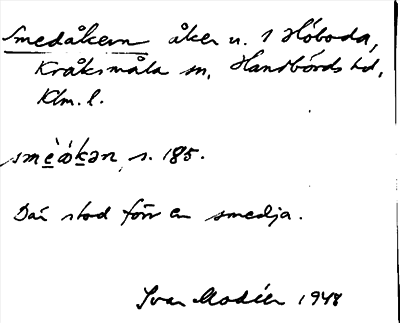 Smedåkern åker u. 1 Höboda,
Kråksmåla sn, Handbörds hd,
Klm. l.
smèákən, s. 185.
Där stod förr en smedja.
Ivar Modéer 1948